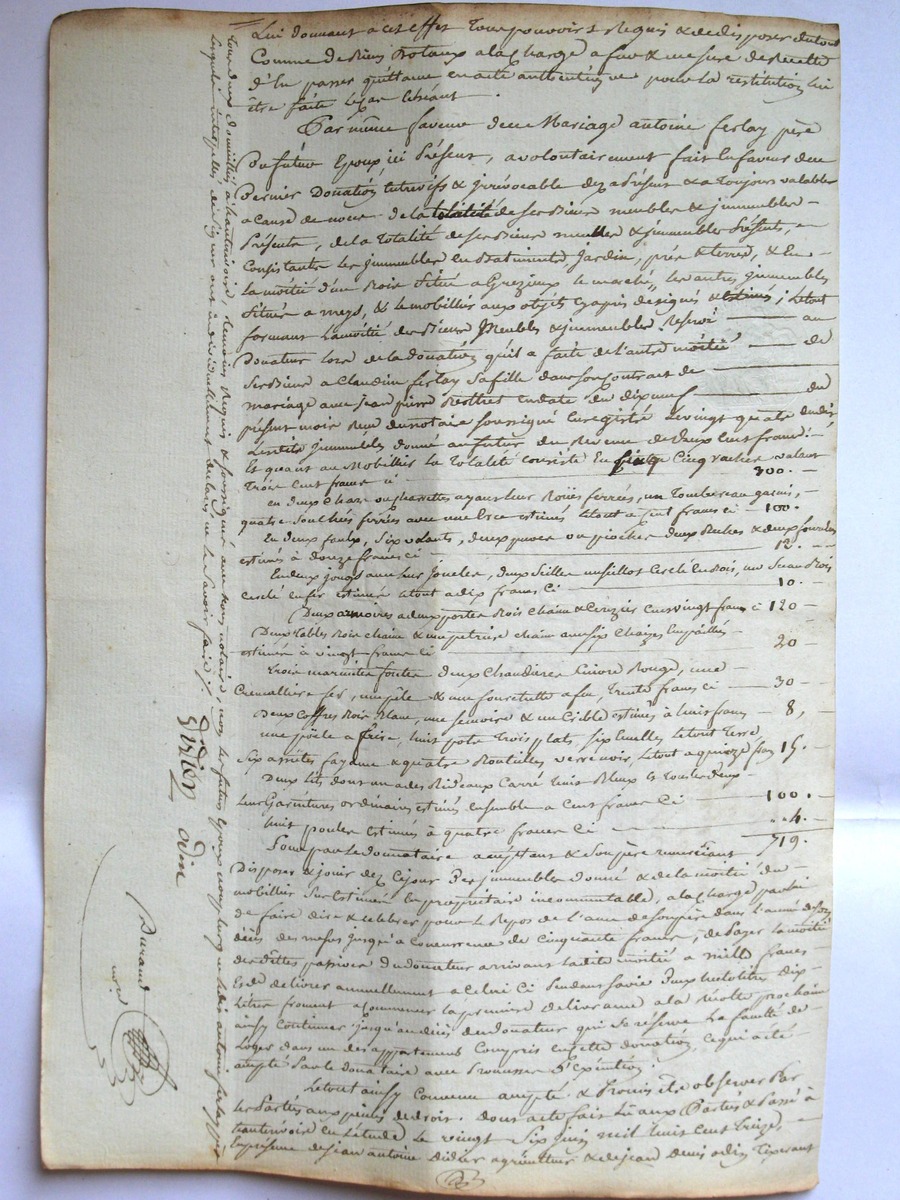 Lui donnant à cet effet tous pouvoirs requis & de disposer du tout
Comme de Biens dotaux a la charge a fur & mesure de Recette
d'En passer quittance en acte authentique pour la restitution lui
être faite le cas échéant.
Par même faveur dece Mariage antoine ferlay père
Du futur Epoux, ici Présent, a volontairement fait en faveur de ce
Dernier Donation, entrevifs & irrévocable dez a présent & a toujours valable
a cause de noces de la totalité de ses Biens meubles & immeubles
Présents, de la totalité de ses Biens meubles & immeubles Présents,
Consistants les immeubles en Batiments, Jardin, prés & terres, & En
la moitié d'un Bois Situé a Grezieux le marché, les autres immeubles
Situés a meys, & le mobillier aux objets cy après designés & estimés; le tout
formant la moitié des Biens Meubles & immeubles Reservé au
Donateur lors de la donation qu'il a faite de l'autre moitié de
Ses Biens a Claudine ferlay sa fille dans son Contrat de
mariage avec Jean pierre en date du dix neuf du
présent mois Reçu du notaire soussigné Enregistré le vingt quatre dudit
Lesdits immeubles donné au futur du Revenu de Deux Cent francs.
Et quant au Mobillier la Totalité consiste En Cinq vaches valant
Trois Cent francs ci 300.
en deux Chars ou charrettes ayant leur Roües ferrées, un Tombereau garni,
quatre ferrées avec une estimés le tout a Cent francs ci 100.
En deux faulx, six volants, deux ou pioches deux Baches & deux
estimés à Douze francs ci 12.
En deux jougs avec leur Joucles, deux Seilles un Cerclé en Bois, un Seau Bois
cerclé en fer estimés le tout a dix francs Ci 10.
Deux armoires a deux portes Bois Chaine & Cerizier Cent vingt francs ci 120
Deux tables Bois chaine & une petrière chaine avec six Chaizes Empaillés
estimés à vingt francs ci 20
trois marmites fonte Deux Chaudières Cuivre Rouge, une
Cremaillère fer, une pêle & une fourchette a feu, Trente francs ci 30
Deux Coffres Bois Blanc, une & un Crible estimés à huit francs 8,
une pöele a frire, huit pots Trois plats, six Ecuelles le tout Terre,
Six assiètes fayance & quatre Bouteilles verre noir, le tout a quinze francs 15.
Deux Lits dont un a des Rideaux Carré unis Bleux & tous les deux
Leur Garnitures ordinaires estimés ensemble a Cent francs Ci 100.
huit poules Estimés à quatre francs Ci 4.
719.
Pour par le donnataire acceptant & son père remerciant
Disposer & jouir dez Cejour Des immeubles donné & de la moitié du
mobillier Susestimé En proprietaire incommutable, a la Charge par lui
de faire dire & celebrer pour le Repos de l'ame de son père dans l'année de son
décès des messes jusqu'à concurrence de Cinquante francs, de Payer la moitié
des dettes passives du donateur arrivant ladite moitié a mille francs
Et de delivrer annuellement a Celui Ci pendant sa vie Deux hectolitres dix
Litres froment a commencer la premiere delivrance a la récolte prochaine
ainsy Continuer jusqu'au décès du donateur qui Se réserve La faculté de
Loger dans un des appartements Compris en cette donation, ce qui a été
accepté Par le donataire avec Promesse D'exécution.
Le tout ainsy Convenu accepté & Promis être observer Par
les Parties aux peines de droit. dont acte fait Lû aux Parties & Passé à
hauterivoire en L'étude, Le vingt Six Juin mil huit Cent treize,
en présence de Jean antoine Didier agriculteur & de Jean Denis odin Tisserant
tous deux domiciliés à hauterivoire, témoins Requis & soussigné avec nous notaire, non les futurs Epoux ledit antoine ferlay père
Lesquels interpellés de signer ont individuellement déclarés ne le savoir faire.
Didier
odin
Durand
nore